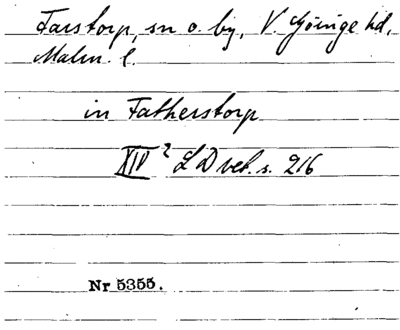 Farstorp, sn o. by, V. Göinge hd,
Malm. l.
in Fatherstorp
XIV² LD vet. s. 216
Nr 5355.